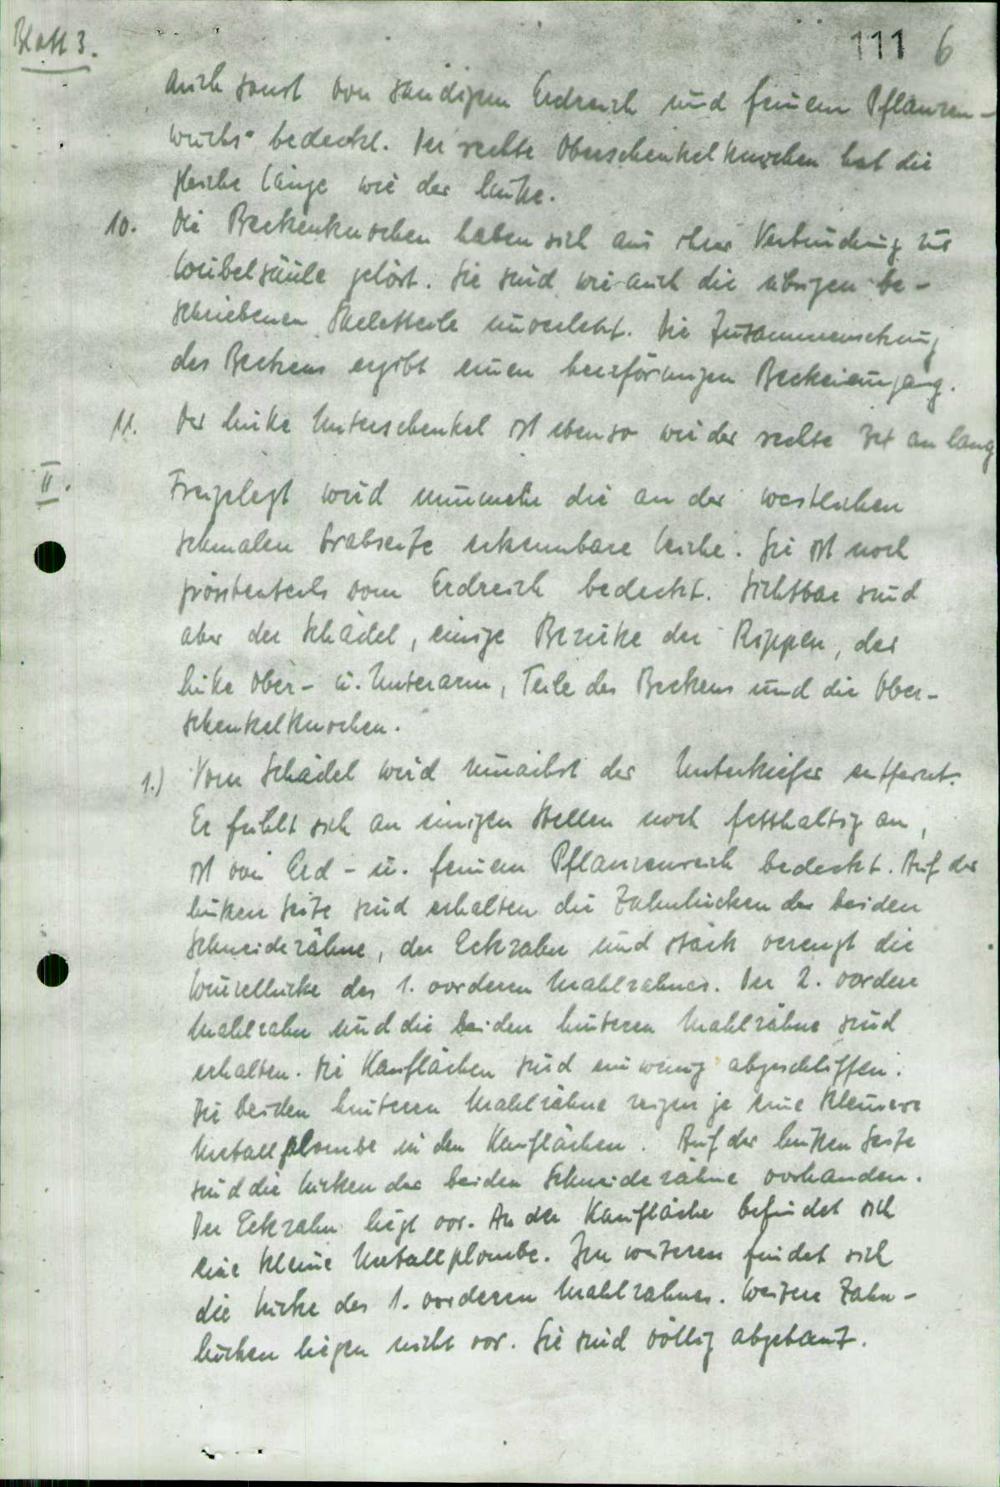 Blatt 3.
111 6
auch sonst von sandigem Erdreich und feinem Pflanzen-
wuchs bedeckt. Der rechte Oberschenkelknochen hat die
gleiche Länge wie der linke.
10. Die Beckenknochen haben sich aus ihrer Verbindung zur
Wirbelsäule gelöst. Sie sind wie auch die übrigen be-
schriebenen Skeletteile unverletzt. Die Zusammensetzung
des Beckens ergibt einen herzförmigen Beckeneingang.
11. Der linke Unterschenkel ist ebenso wie der rechte lang
II. Freigelegt wird nunmehr die an der westlichen
schmalen Grabseite erkennbare Leiche. Sie ist noch
grösstenteils vom Erdreich bedeckt. Sichtbar sind
aber der Schädel, einige Bezirke der Rippen, der
linke Ober- u. Unterarm, Teile des Beckens und die Ober-
schenkelknochen.
1.) Vom Schädel wird zunächst der Unterkiefer entfernt.
Er fühlt sich an einigen Stellen noch fetthaltig an,
ist von Erd- u. feinem Pflanzenreich bedeckt. Auf der
linken Seite sind erhalten die Zahnlücken der beiden
Schneidezähne, der Eckzahn und stark verengt die
Wurzellücke des 1. vorderen Mahlzahnes. Der 2. vordere
Mahlzahn und die beiden hinteren Mahlzähne sind
erhalten. Die Kauflächen sind ein wenig abgeschliffen.
Die beiden hinteren Mahlzähne zeigen je eine kleinere
Metallplombe in den Kauflächen. Auf der linken Seite
sind die Lücken der beiden Schneidezähne vorhanden.
Der Eckzahn liegt vor. An der Kaufläche befindet sich
eine kleine Metallplombe. Im weiteren findet sich
die Lücke des 1. vorderen Mahlzahnes. Weitere Zahn-
lücken liegen nicht vor. Sie sind völlig abgebaut.